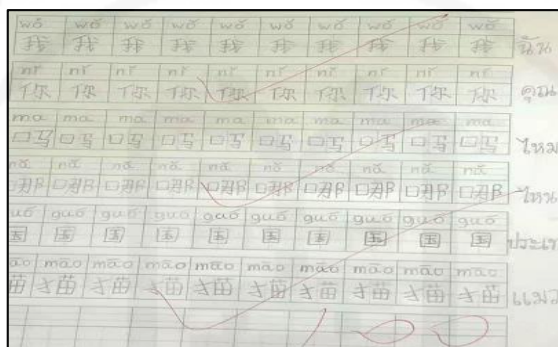 wǒ wǒ wǒ wǒ wǒ wǒ wǒ wǒ wǒ wǒ
我 我 我 我 我 我 我 我 我 我 ฉัน
nǐ nǐ nǐ nǐ nǐ nǐ nǐ nǐ nǐ nǐ
你 你 你 你 你 你 你 你 你 你 คุณ
ma ma ma ma ma ma ma ma ma ma
吗 吗 吗 吗 吗 吗 吗 吗 吗 吗 ไหม
nǎ nǎ nǎ nǎ nǎ nǎ nǎ nǎ nǎ nǎ
哪 哪 哪 哪 哪 哪 哪 哪 哪 哪 ไหน
guó guó guó guó guó guó guó guó guó
国 国 国 国 国 国 国 国 国 国
māo māo māo māo māo māo māo māo māo
猫 猫 猫 猫 猫 猫 猫 猫 猫 แมว